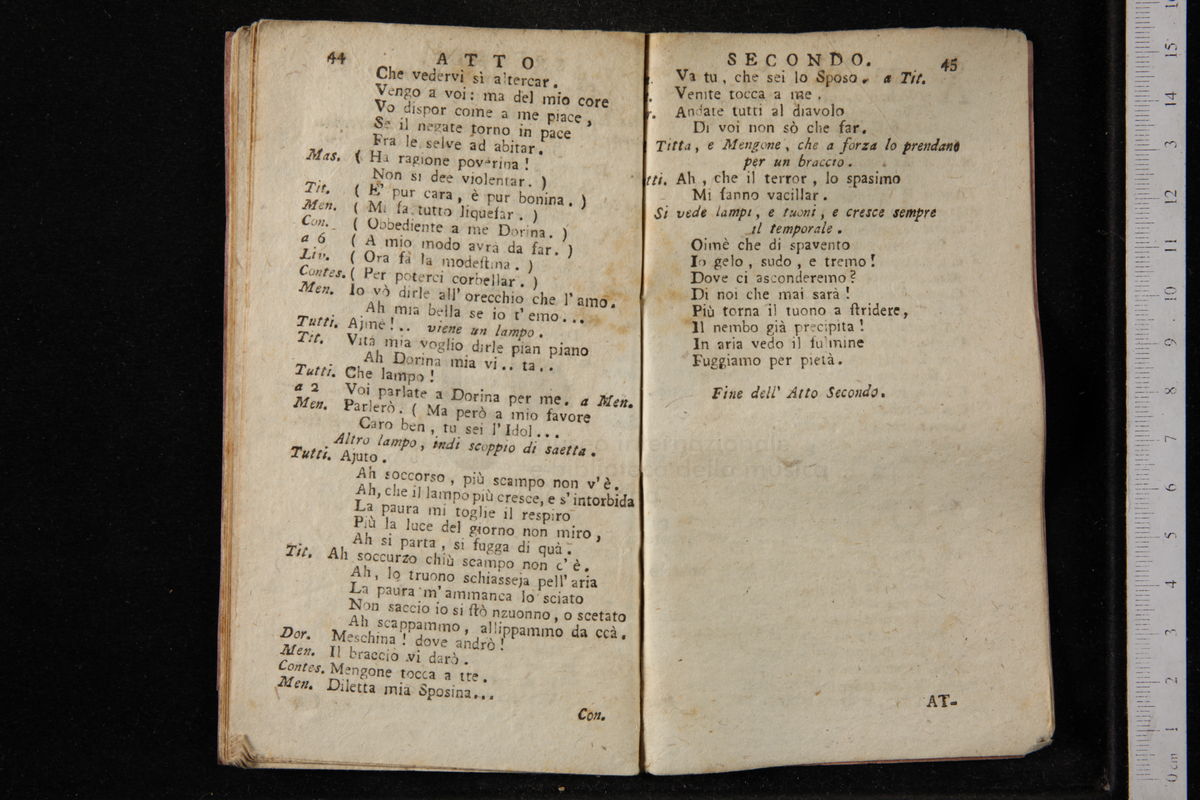 44 ATTO
Che vedervi sì altercar.
Vengo a voi: ma del mio core
Vo dispor come a me piace,
Se il negate torno in pace
Fra le selve ad abitar.
Mas. ( Ha ragione poverina!
Non si dee violentar. )
Tit. ( E' pur cara, è pur bonina. )
Men. ( Mi fa tutto liquefar. )
Con. ( Obbediente a me Dorina. )
a 6 ( A mio modo avrà da far. )
Liv. ( Ora fà la modeſtina. )
Contes. ( Per poterci corbellar. )
Men. Io vò dirle all' orecchio che l' amo.
Ah mia bella se io t' emo...
Tutti. Ajmè!.. viene un lampo.
Tit. Vita mia voglio dirle pian piano
Ah Dorina mia vi.. ta..
Tutti. Che lampo!
a 2 Voi parlate a Dorina per me. a Men.
Men. Parlerò. ( Ma però a mio favore
Caro ben, tu sei l' Idol...
Altro lampo, indi scoppio di saetta.
Tutti. Ajuto.
Ah soccorso, più scampo non v' è.
Ah, che il lampo più cresce, e s' intorbida
La paura mi toglie il respiro
Più la luce del giorno non miro,
Ah si parta, si fugga di quà.
Tit. Ah soccurzo chiù scampo non c' è.
Ah, lo truono schiasseja pell' aria
La paura m' ammanca lo sciato
Non saccio io si ſtò nzuonno, o scetato
Ah scappammo, allippammo da ccà.
Dor. Meschina! dove andrò!
Men. Il braccio vi darò.
Contes. Mengone tocca a tte.
Men. Diletta mia Sposina...
Con.
SECONDO. 45
Va tu, che sei lo Sposo. a Tit.
Venite tocca a me.
Andate tutti al diavolo
Di voi non sò che far.
Titta, e Mengone, che a forza lo prendano
per un braccio.
tti. Ah, che il terror, lo spasimo
Mi fanno vacillar.
Si vede lampi, e tuoni, e cresce sempre
il temporale.
Oimè che di spavento
Io gelo, sudo, e tremo!
Dove ci asconderemo?
Di noi che mai sarà!
Più torna il tuono a ſtridere,
Il nembo già precipita!
In aria vedo il fulmine
Fuggiamo per pietà.
Fine dell' Atto Secondo.
AT-